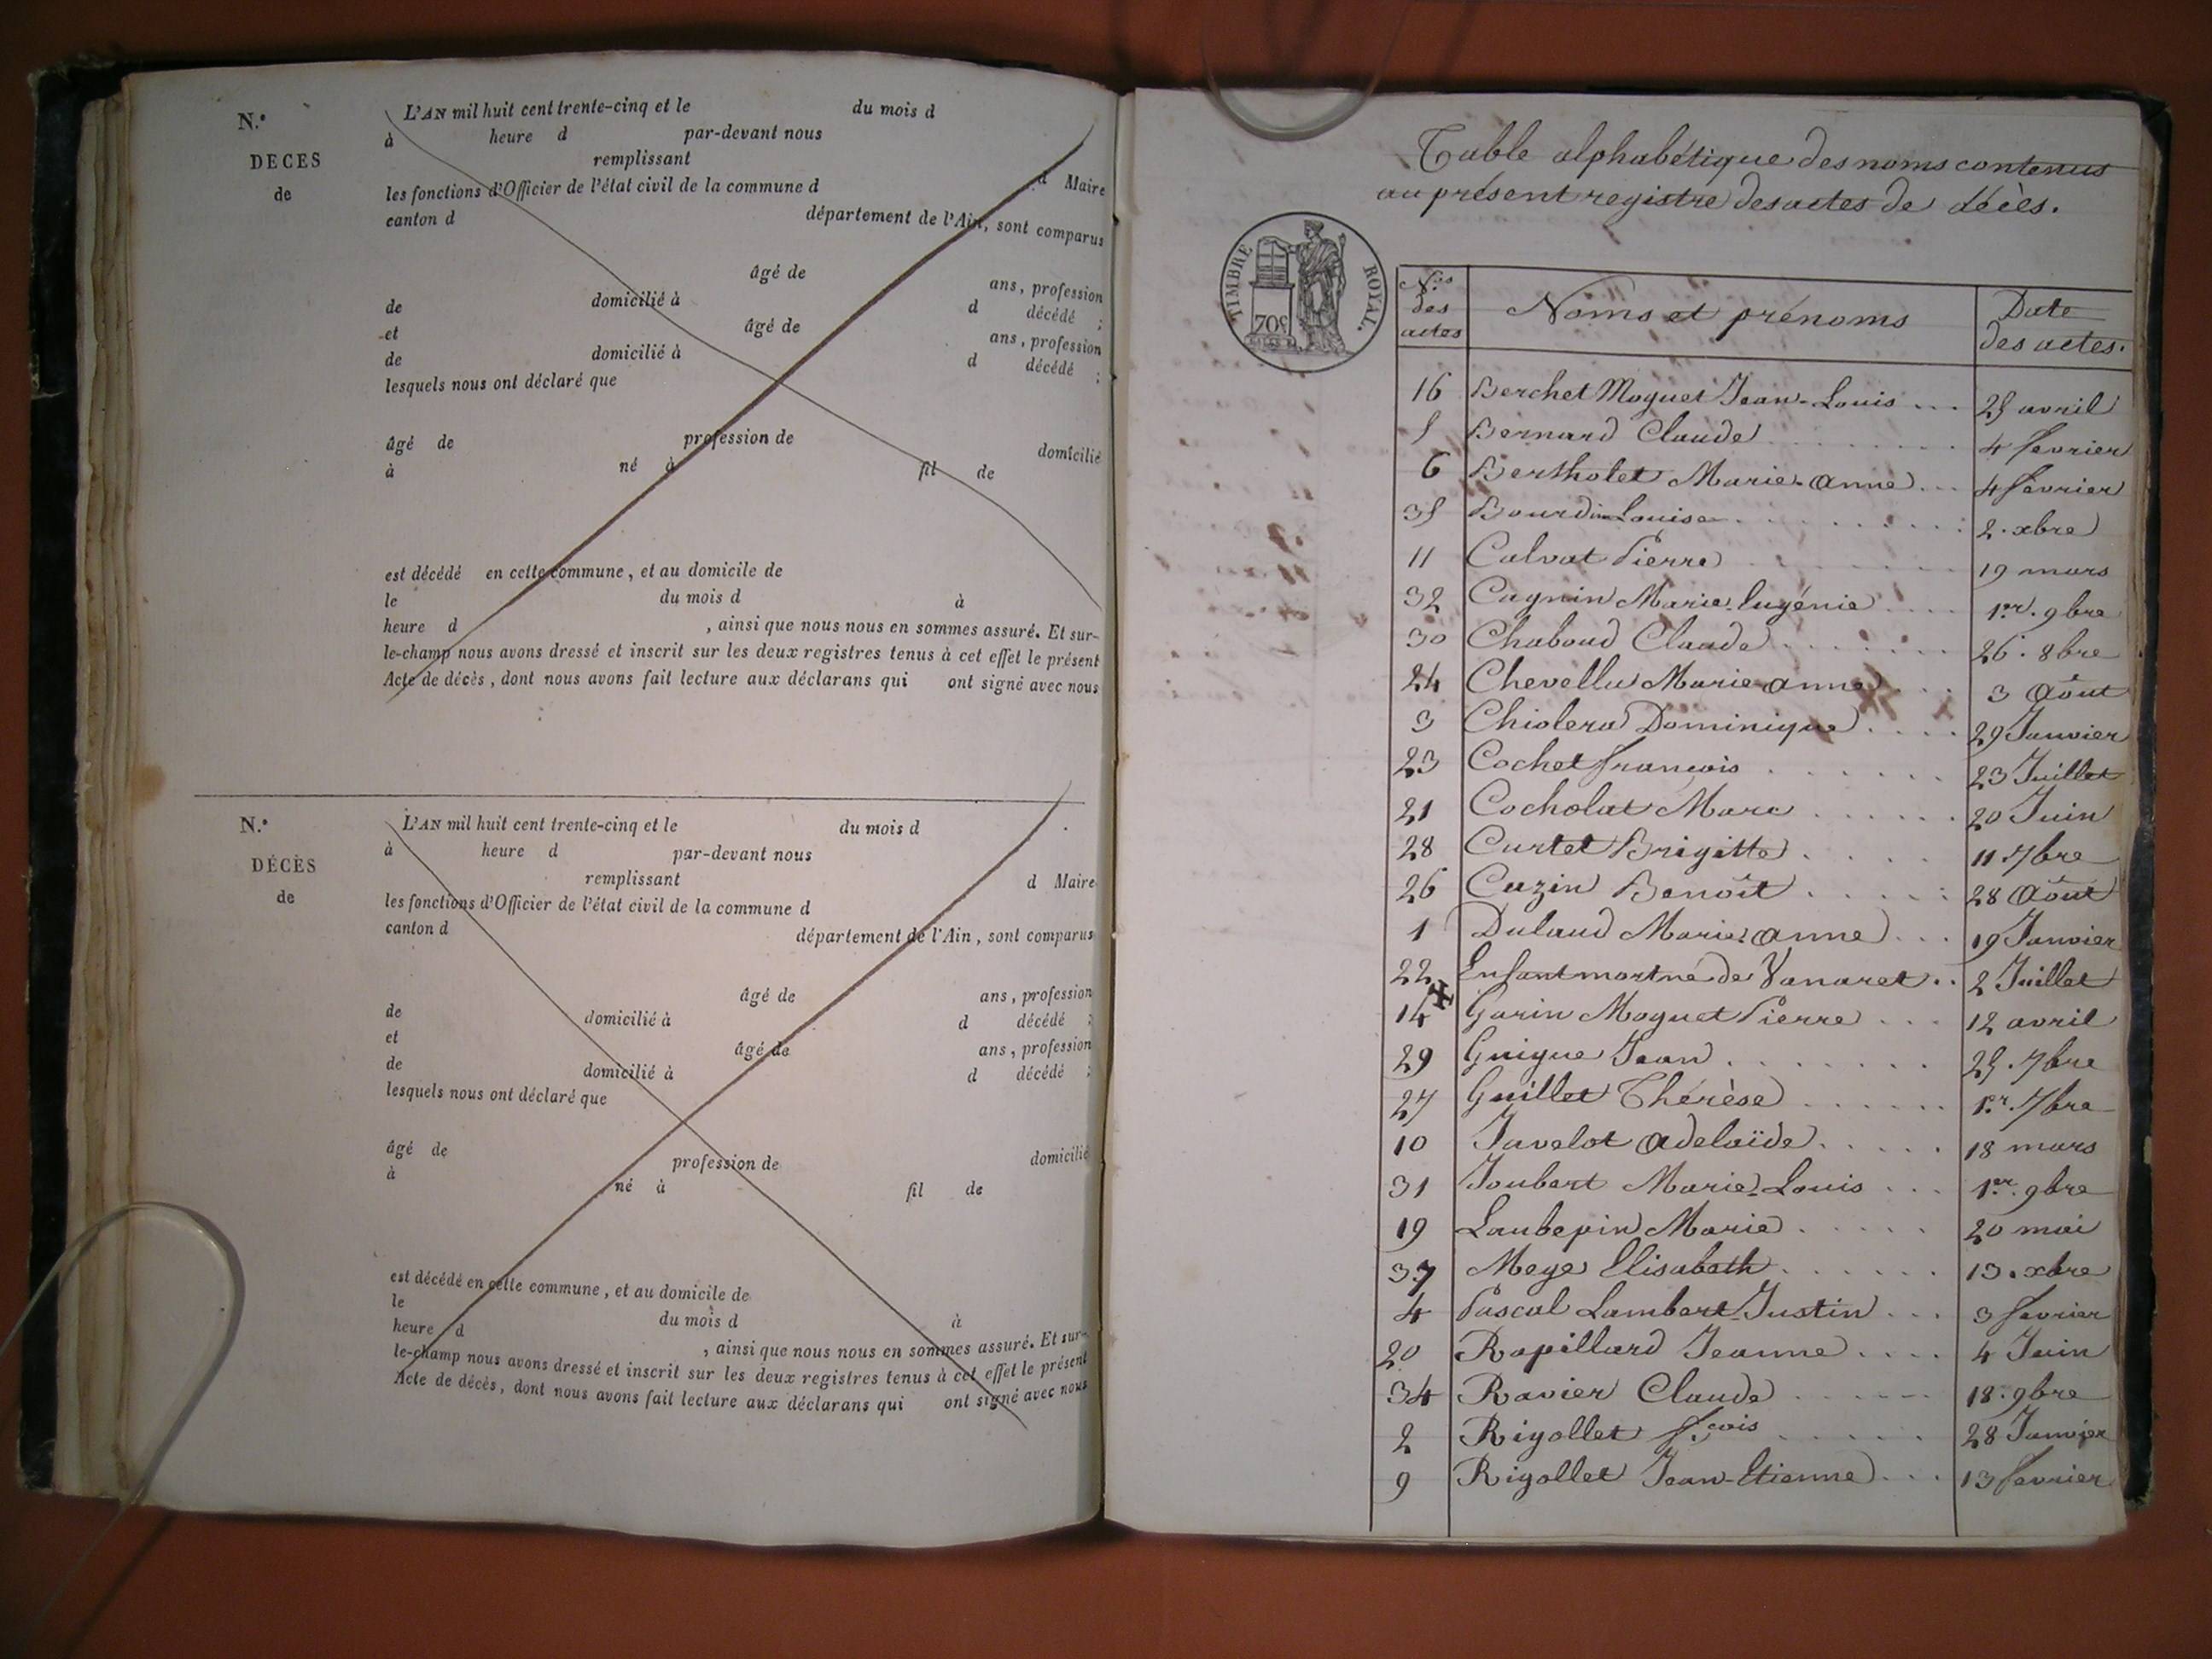 N.°
DECES
de
L'AN mil huit cent trente-cinq et le du mois d
à heure d par-devant nous
remplissant
les fonctions d'Officier de l'état civil de la commune d d Maire
canton d département de l'Ain, sont comparus
âgé de ans, profession
de domicilié à d décédé ;
et âgé de ans, profession
de domicilié à d décédé ;
lesquels nous ont déclaré que
âgé de profession de domicilié
à né à fil de
est décédé en cette commune, et au domicile de
le du mois d à
heure d , ainsi que nous nous en sommes assuré. Et sur-
le-champ nous avons dressé et inscrit sur les deux registres tenus à cet effet le présent
Acte de décès, dont nous avons fait lecture aux déclarans qui ont signé avec nous
N.°
DÉCÈS
de
L'AN mil huit cent trente-cinq et le du mois d
à heure d par-devant nous
remplissant d Maire
les fonctions d'Officier de l'état civil de la commune d
canton d département de l'Ain, sont comparus
âgé de ans, profession
de domicilié à d décédé ;
et âgé de ans, profession
de domicilié à d décédé ;
lesquels nous ont déclaré que
âgé de profession de domicilié
à né à fil de
est décédé en cette commune, et au domicile de
le du mois d à
heure d , ainsi que nous nous en sommes assuré. Et sur-
le-champ nous avons dressé et inscrit sur les deux registres tenus à cet effet le présent
Acte de décès, dont nous avons fait lecture aux déclarans qui ont signé avec nous
Table alphabétique des noms contenus
au présent registre des actes de décès.
TIMBRE ROYAL.
70c
N.os des actes Noms et prénoms Date des actes.
16 Berchet Moguet Jean-Louis ... 25 avril
5 Bernard Claude 4 fevrier
6 Bertholet Marie-anne ... 4 fevrier
35 Bourdin Louise 2. xbre
11 Calvat Pierre 19 mars
32 Cagnin Marie Eugénie 1er. 9bre
30 Chaboud Claude 26. 8bre
24 Chevellu Marie-anne 3 Août
3 Chiolera Dominique 29 Janvier
23 Cochet francois 23 Juillet
21 Cocholat Marc 20 Juin
28 Curtet Brigitte 11. 7bre
26 Cuzin Benoît 28 Août
1 Dulaud Marie-anne ... 19 Janvier
22 Enfant mort né de Vanaret .. 2 Juillet
14 Garin Moguet Pierre ... 12 avril
29 Guigue Jean 25. 7bre
27 Guillet Thérèse 1er. 7bre
10 Javelot adelaïde 18 mars
31 Joubert Marie-Louis ... 1er. 9bre
19 Laubepin Marie 20 mai
37 Meye Elisabeth 13. xbre
4 Pascal Lambert-Justin ... 3 fevrier
20 Rapillard Jeanne 4 Juin
34 Ravier Claude 18. 9bre
2 Rigollet f.cois 28 Janvier
9 Rigollet Jean-Etienne ... 13 fevrier